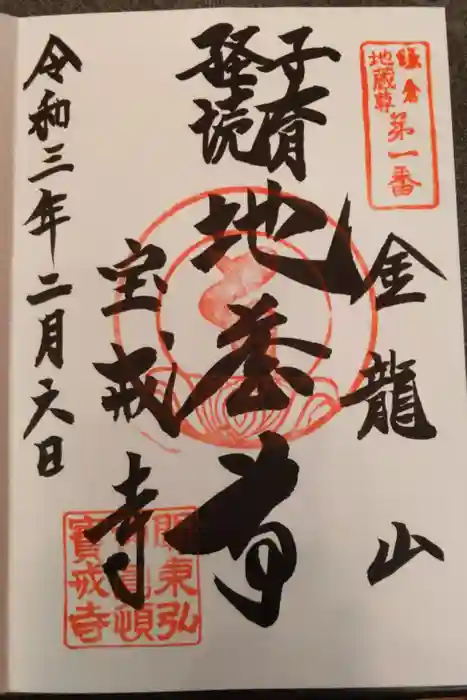 鎌倉
地蔵尊
第一番
金龍山
子育
経読
地蔵尊
宝戒寺
令和三年二月六日
寶戒寺